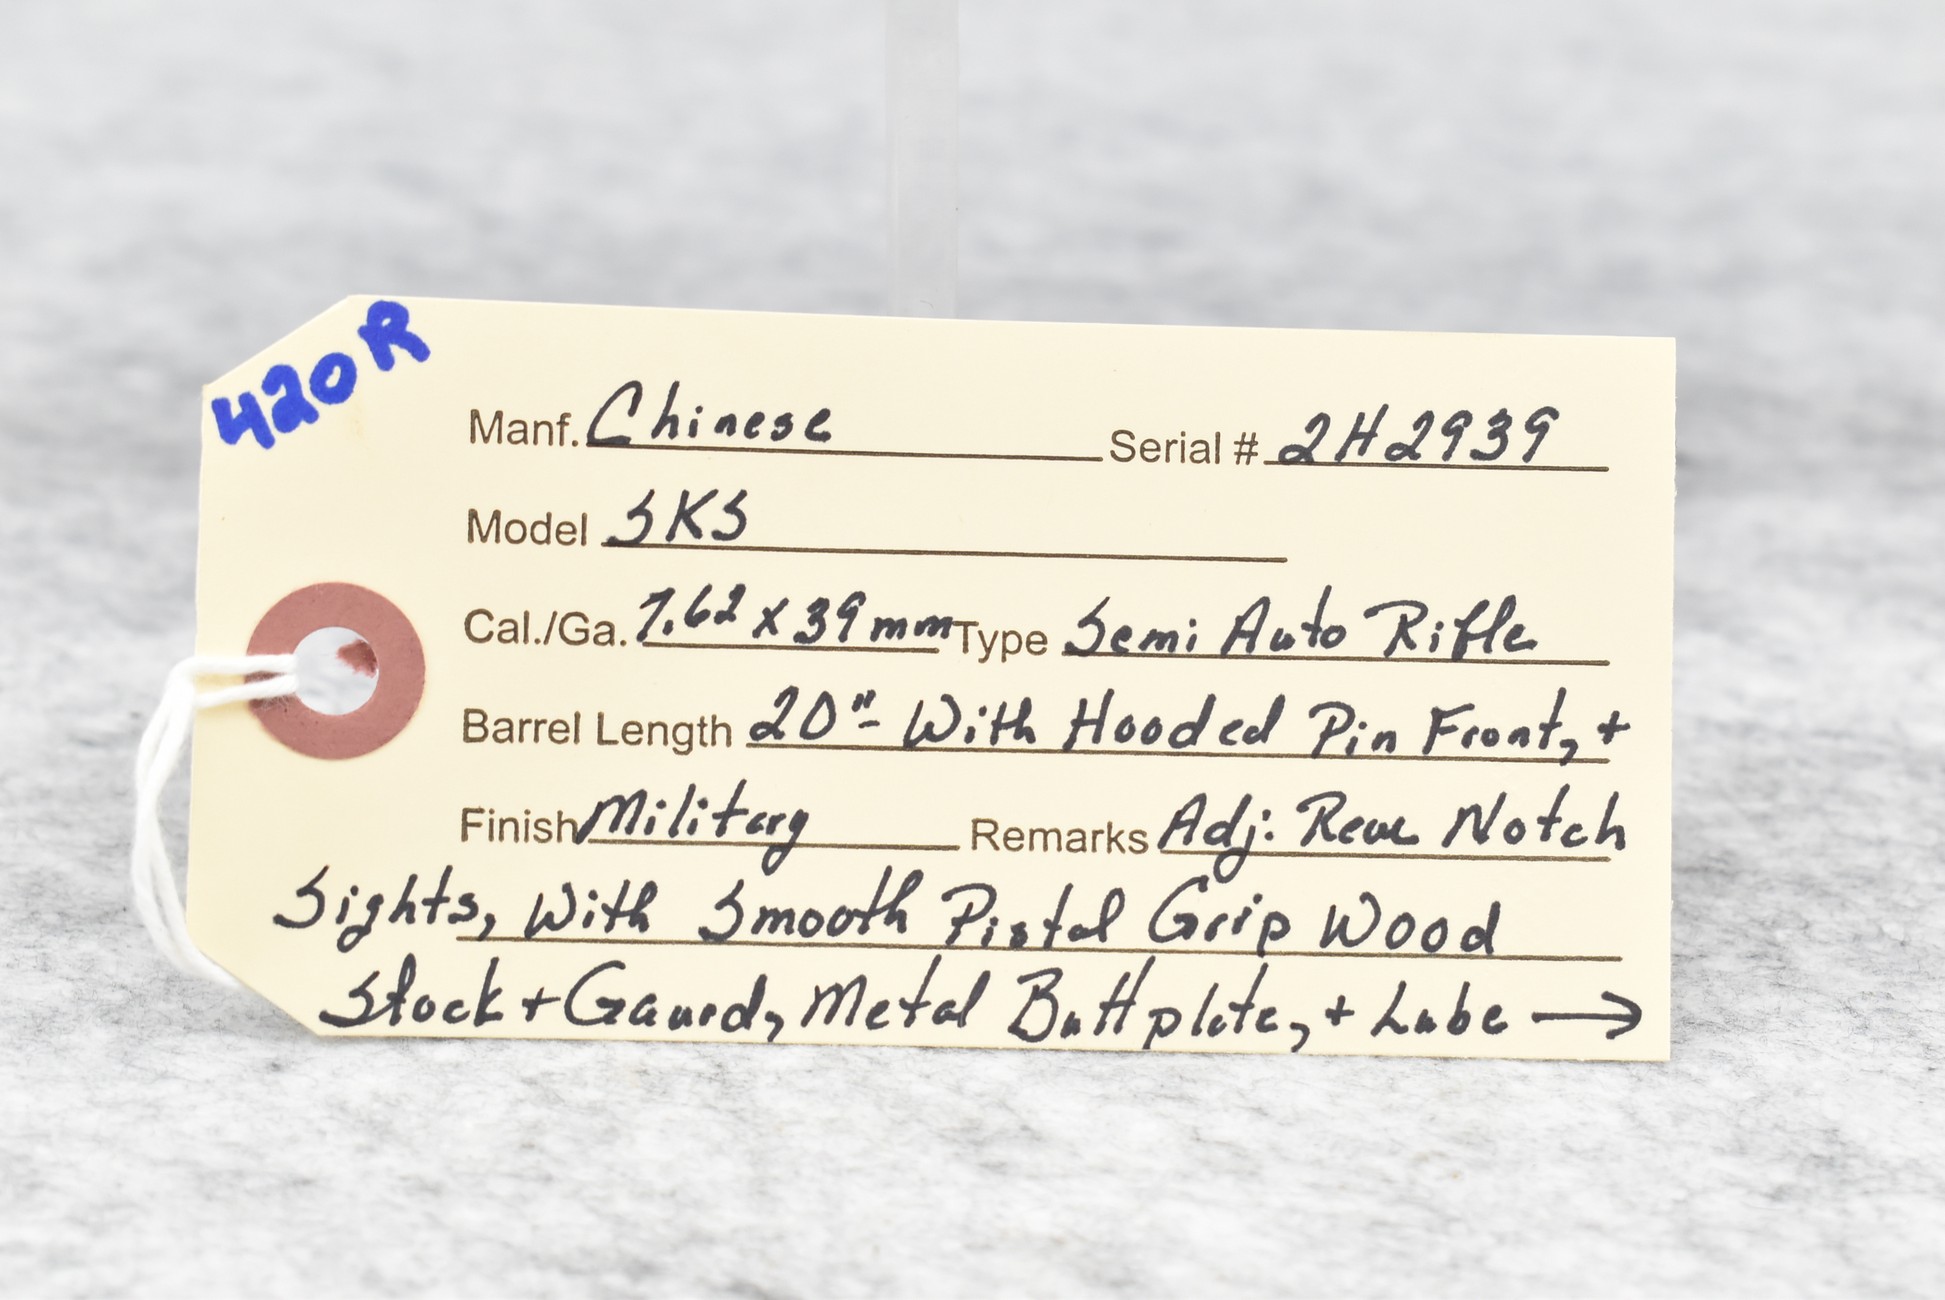 420R
Manf. Chinese Serial # 2H2939
Model SKS
Cal./Ga. 7.62 x 39mm Type Semi Auto Rifle
Barrel Length 20"- With Hooded Pin Front, +
Finish Military Remarks Adj: Rear Notch
Sights, With Smooth Pistol Grip Wood
Stock + Gaurd, Metal Buttplate, + Lube →